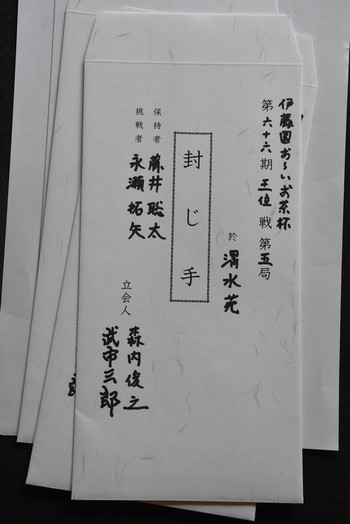 伊藤園お~いお茶杯
第六十六期王位戦第五局
於 渭水苑
封じ手
保持者 藤井聡太
挑戦者 永瀬拓矢
立会人 森内俊之
武市三郎